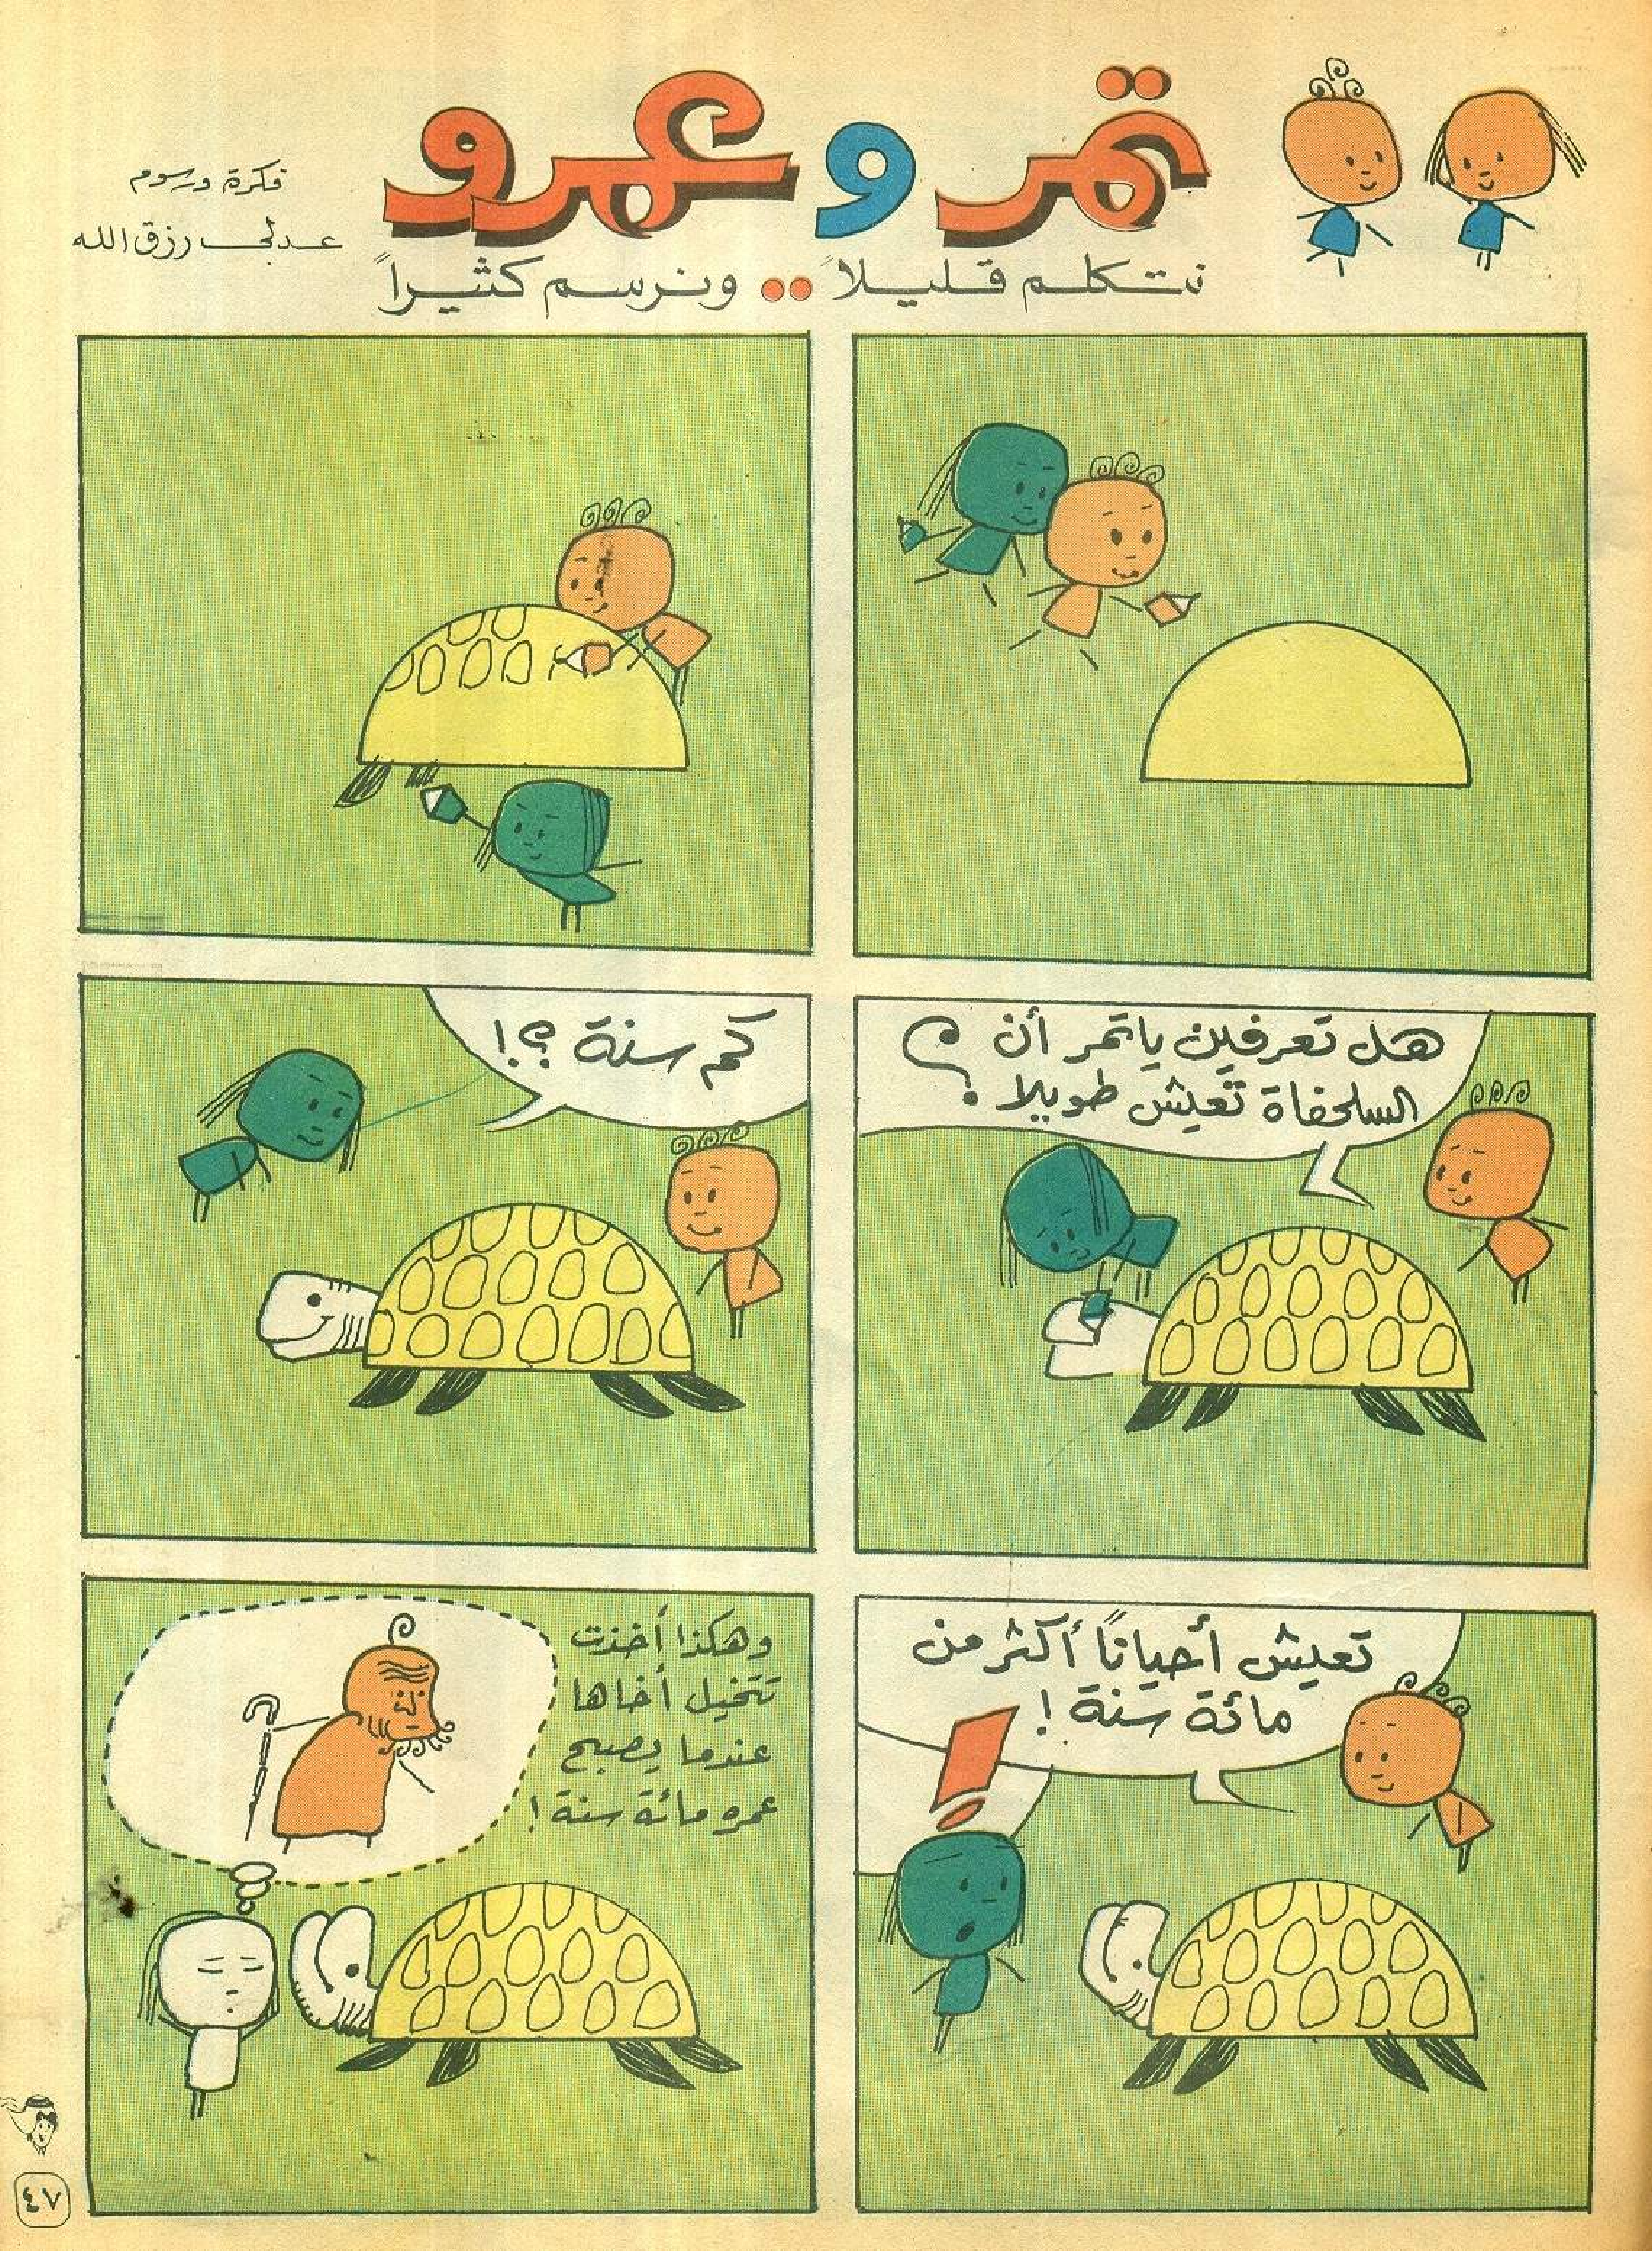 تمر و عمرو
نتكلم قليلاً .. ونرسم كثيراً
فكرة ورسوم
عدلي رزق الله
هل تعرفين ياتمر أن
السلحفاة تعيش طويلا ؟
كم سنة ؟!
تعيش أحياناً أكثر من
مائة سنة !
!
وهكذا أخذت
تتخيل أخاها
عندما يصبح
عمره مائة سنة !
٤٧